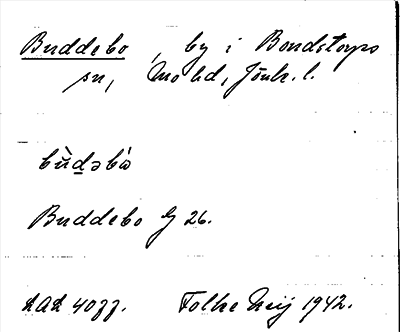 Buddebo, by i Bondstorps
sn, Mo hd, Jönk. l.
bùd̲əbò
Buddebo G 26.
LAL 4077.  Folke Meij 1942.